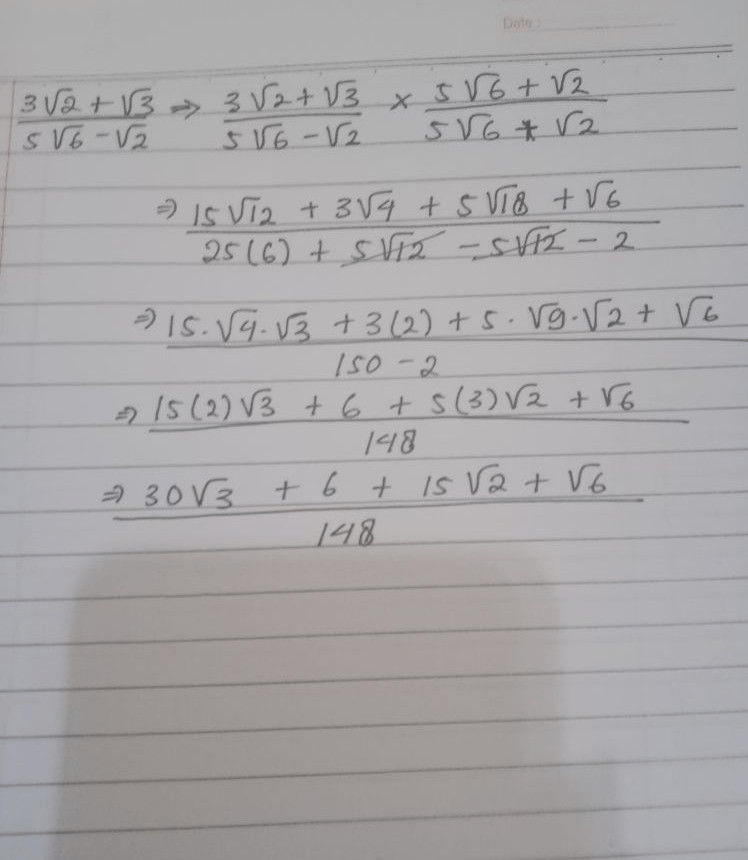 Date :
(3√2 + √3)/(5√6 - √2) ⇒ (3√2 + √3)/(5√6 - √2) × (5√6 + √2)/(5√6 + √2)
⇒ (15√12 + 3√4 + 5√18 + √6)/(25(6) + 5√12 - 5√12 - 2)
⇒ (15·√4·√3 + 3(2) + 5·√9·√2 + √6)/(150 - 2)
⇒ (15(2)√3 + 6 + 5(3)√2 + √6)/148
⇒ (30√3 + 6 + 15√2 + √6)/148